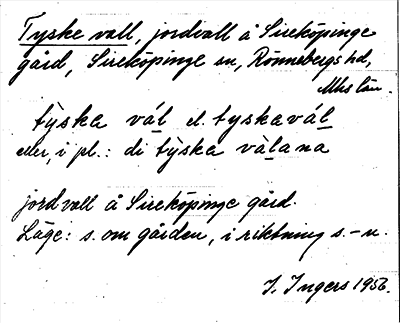 Tyske vall, jordvall å Sireköpinge
gård, Sireköpinge sn, Rönnebergs hd,
Mhs län.
tỳska vál el. tyskavál
eller, i pl.: di tỳska vàlana
jordvall å Sireköpinge gård.
Läge: s. om gården, i riktning s.-n.
I. Ingers 1956.